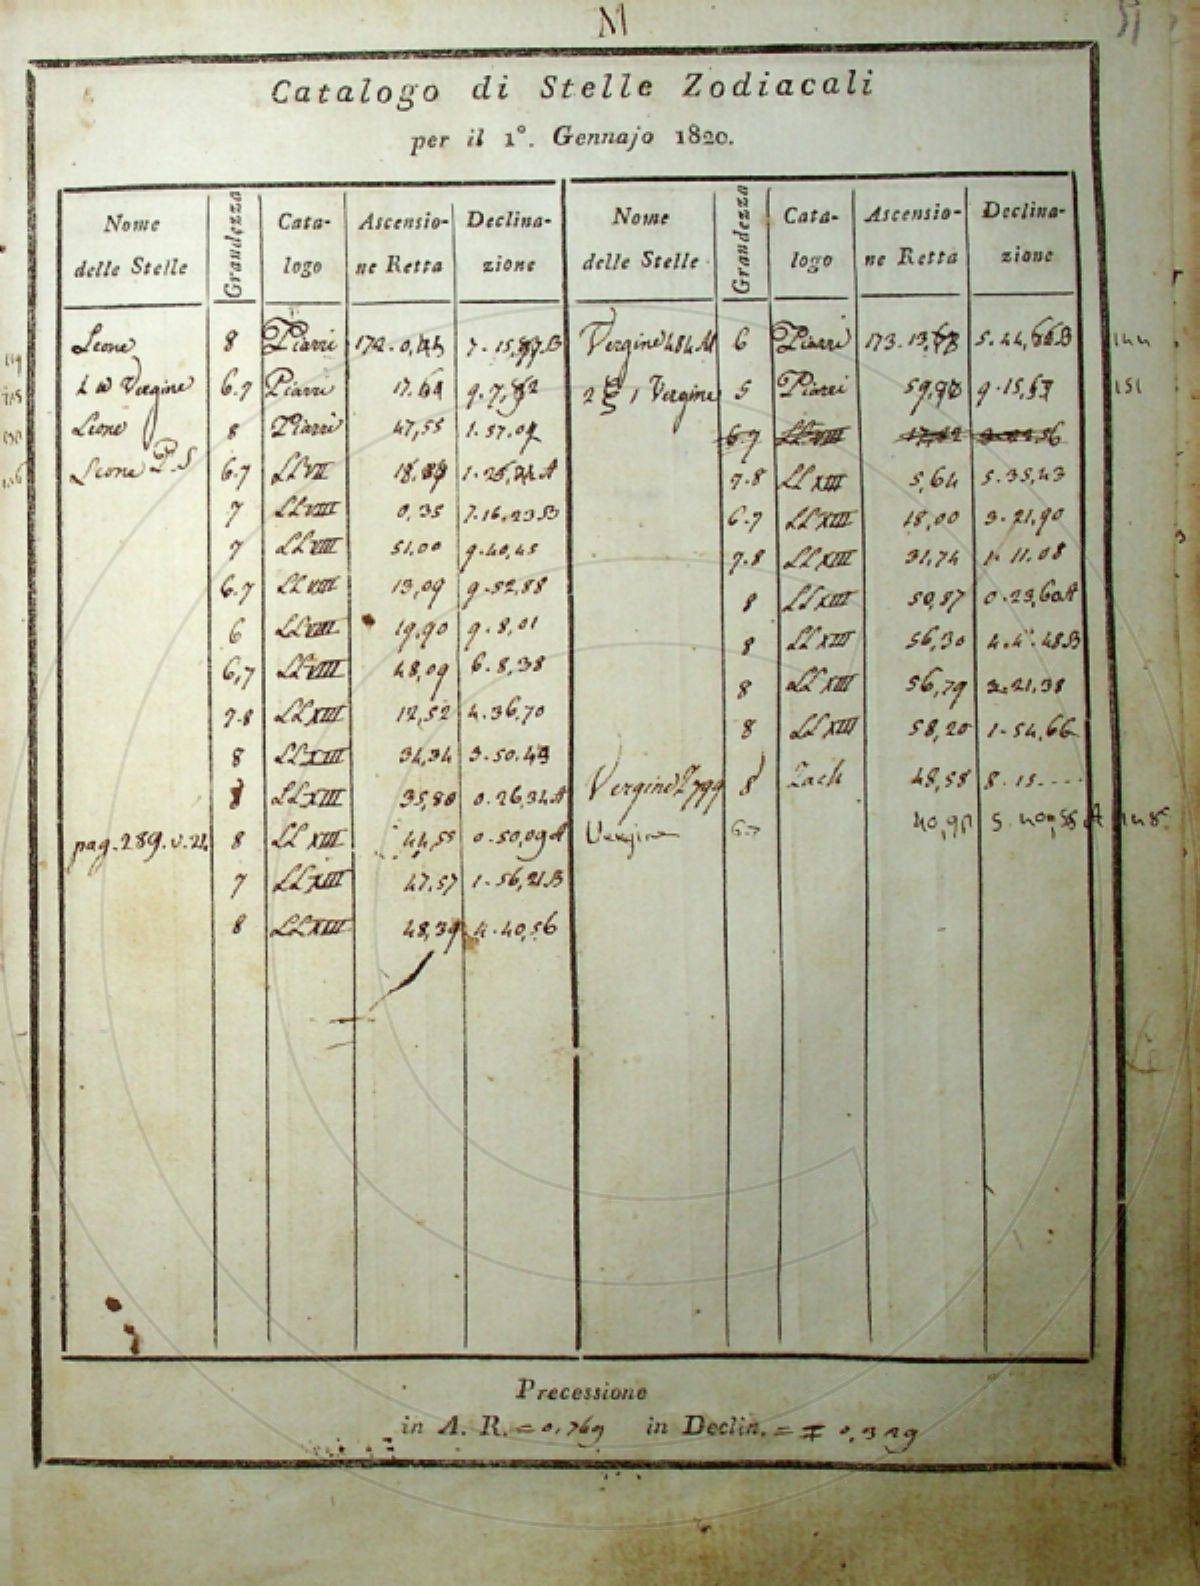 M
51
Catalogo di Stelle Zodiacali
per il 1°. Gennajo 1820.
Nome delle Stelle Grandezza Cata-logo Ascensio-ne Retta Declina-zione
Leone 8 Piazzi 172. 0, 7. 15,
1 ω Vergine 6.7 Piazzi 17.61 9. 7,
Leone 8 Piazzi 47,55 1. 57.09
Leone P. S 6.7 LL VII 18. 1. 25, A
7 LL VIII 0,35 7.16.23 B
7 LL VIII 51,00 9.40,45
6.7 LL VIII 13,09 9.52,88
6 LL VIII 19,90 9.8,01
6,7 LL VIII 48,09 6.8,38
7.8 LL XIII 12,52 4.36,70
8 LL XIII 34,34 3.50.49
8 LL XIII 35,80 0.26,34 A
pag. 289. v. 24 8 LL XIII 44,55 0.50,09 A
7 LL XIII 47,57 1.56,21 B
8 LL XIII 48,39 4.40,56
Nome delle Stelle Grandezza Cata-logo Ascensio-ne Retta Declina-zione
Vergine 484 M 6 Piazzi 173. 13, 5. 44, B 144
2 ξ 1 Vergine 5 Piazzi 59, 9. 15,57 151
6.7 LL VIII
7.8 LL XIII 5,64 5.35,43
6.7 LL XIII 18,00 3.21,90
7.8 LL XIII 31,74 1.11.08
8 LL XIII 50,87 0.23,60 A
8 LL XIII 56,30 4.4.48 B
8 LL XIII 56,79 3.21,38
8 LL XIII 58,20 1.54,66
Vergine Z 799 8 Zach 48,58 8.15....
Vergine 6.7 40,90 5.40,55 A 148
Precessione
in A. R. = 0,769 in Declin. = ∓ 0,329